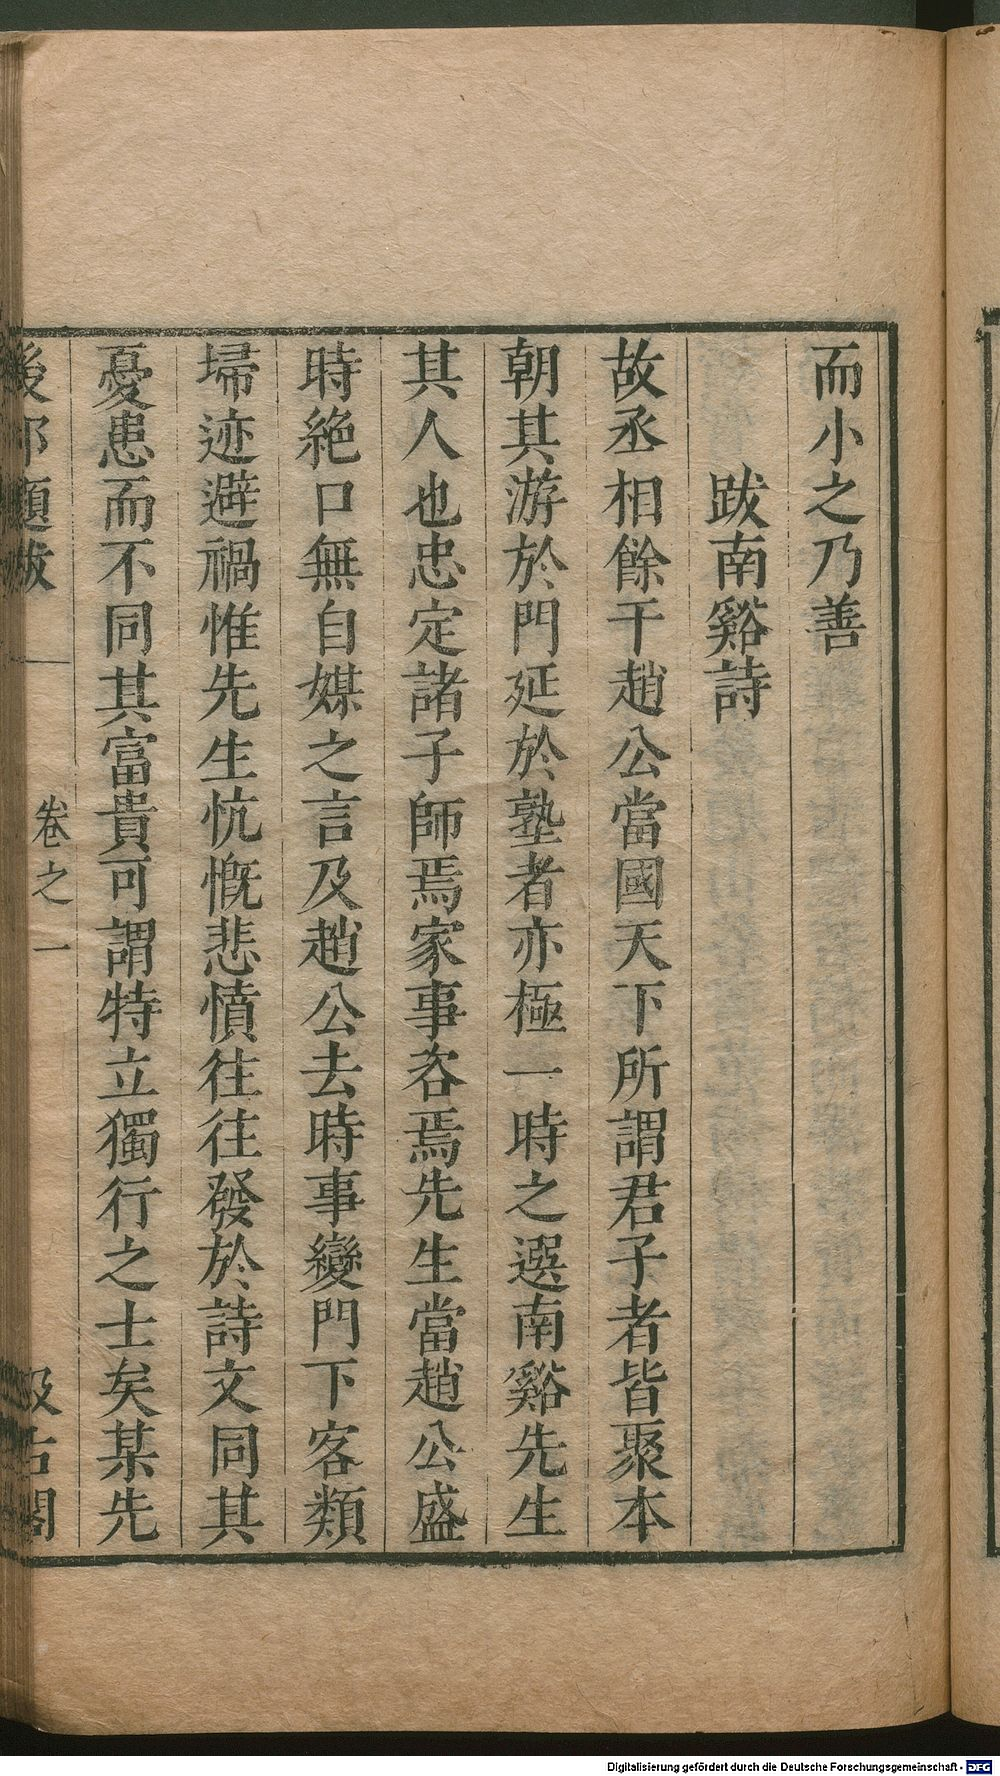 而小之乃善
跋南谿詩
故丞相餘干趙公當國天下所謂君子者皆聚本
朝其游於門延於塾者亦極一時之選南谿先生
其人也忠定諸子師焉家事咨焉先生當趙公盛
時絶口無自媒之言及趙公去時事變門下客類
埽迹避禍惟先生忼慨悲憤往往發於詩文同其
憂患而不同其富貴可謂特立獨行之士矣某先
後邨題跋 卷之一 汲古閣
Digitalisierung gefördert durch die Deutsche Forschungsgemeinschaft - DFG